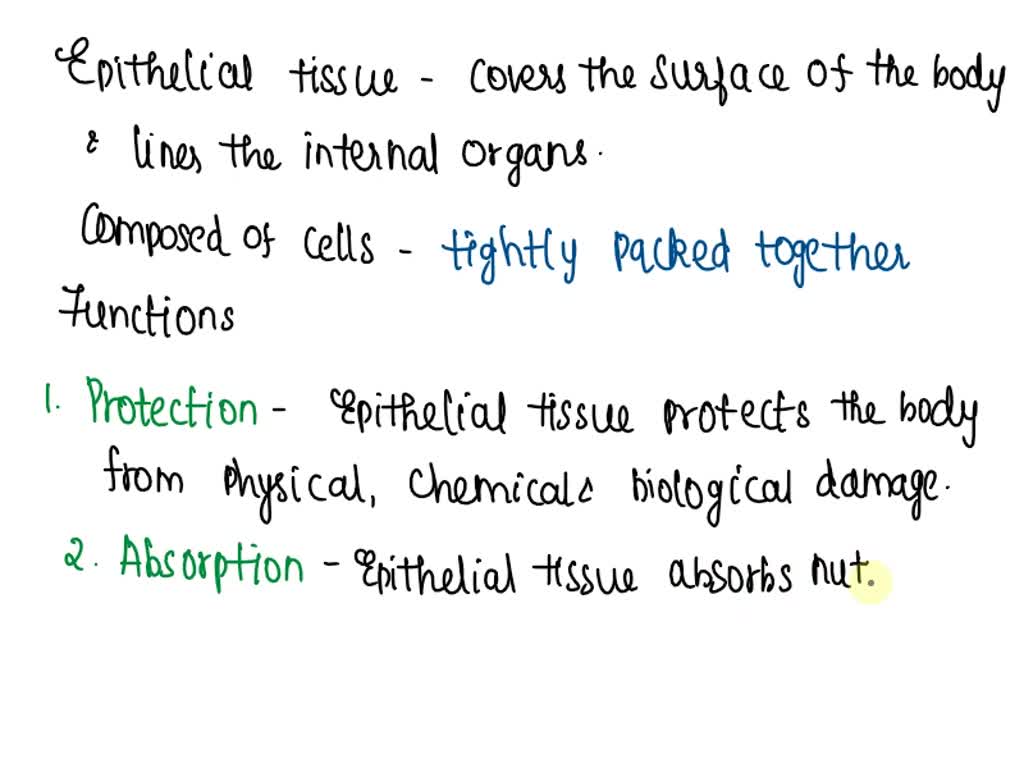 Epithelial tissue - covers the surface of the body
& lines the internal organs.
Composed of cells - tightly packed together
Functions
1. Protection - Epithelial tissue protects the body
from physical, chemical & biological damage.
2. Absorption - Epithelial tissue absorbs nut